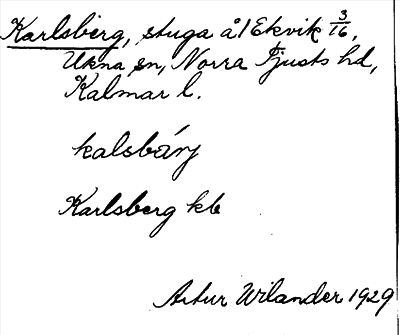 Karlsberg, stuga å Ekvik 3/16,
Ukna sn, Norra Tjusts hd,
Kalmar l.
kalsbárj
Karlsberg kb
Artur Wilander 1929